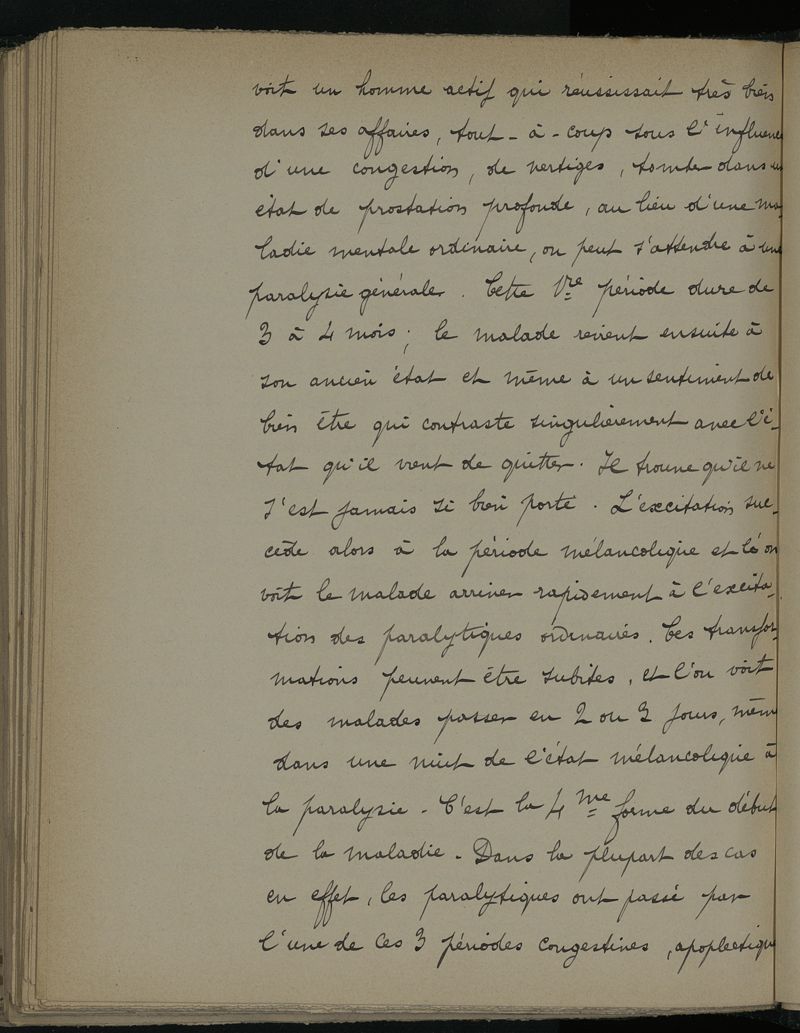 voit un homme actif qui réussissait très bien
dans ses affaires, tout-à-coup sous l'influence
d'une congestion, de vertiges, tomber dans un
état de prostation profonde, au lieu d'une ma-
ladie mentale ordinaire, on peut s'attendre à une
paralysie générale. Cette 1re période dure de
3 à 4 mois; le malade revient ensuite à
son ancien état et même à un sentiment de
bien être qui contraste singulièrement avec l'é-
tat qu'il vient de quitter. Il trouve qu'il ne
s'est jamais si bien porté. L'excitation suc-
cède alors à la période mélancolique et l'on
voit le malade arriver rapidement à l'excita-
tion des paralytiques ordinaires. Ces transfor-
mations peuvent être subites, et l'on voit
des malades passer en 2 ou 3 jours, même
dans une nuit de l'état mélancolique à
la paralysie. C'est la 4me forme du début
de la maladie. Dans la plupart des cas
en effet, les paralytiques ont passé par
l'une de ces 3 périodes congestives, apoplectique